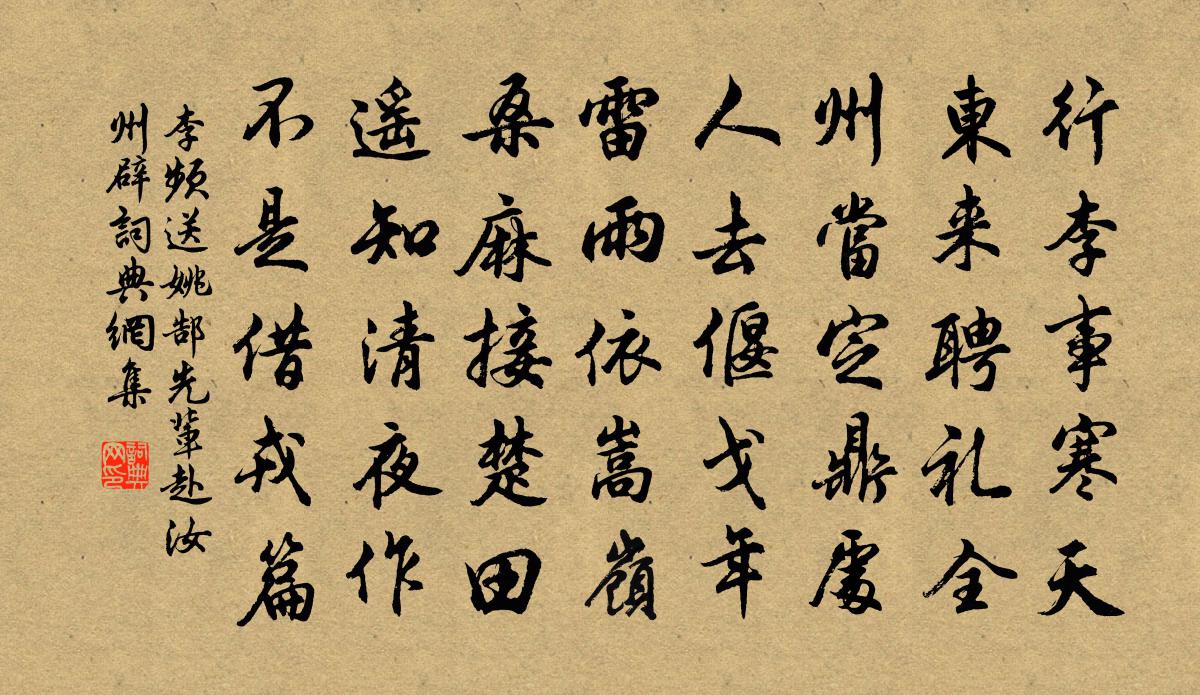 行李事寒天
東来聘礼全
州當定鼎處
人去偃戈年
雷雨依嵩嶺
桑麻接楚田
遥知清夜作
不是借戎篇
李頻送姚郜先輩赴汝
州辟詞典網集
詞典
网印